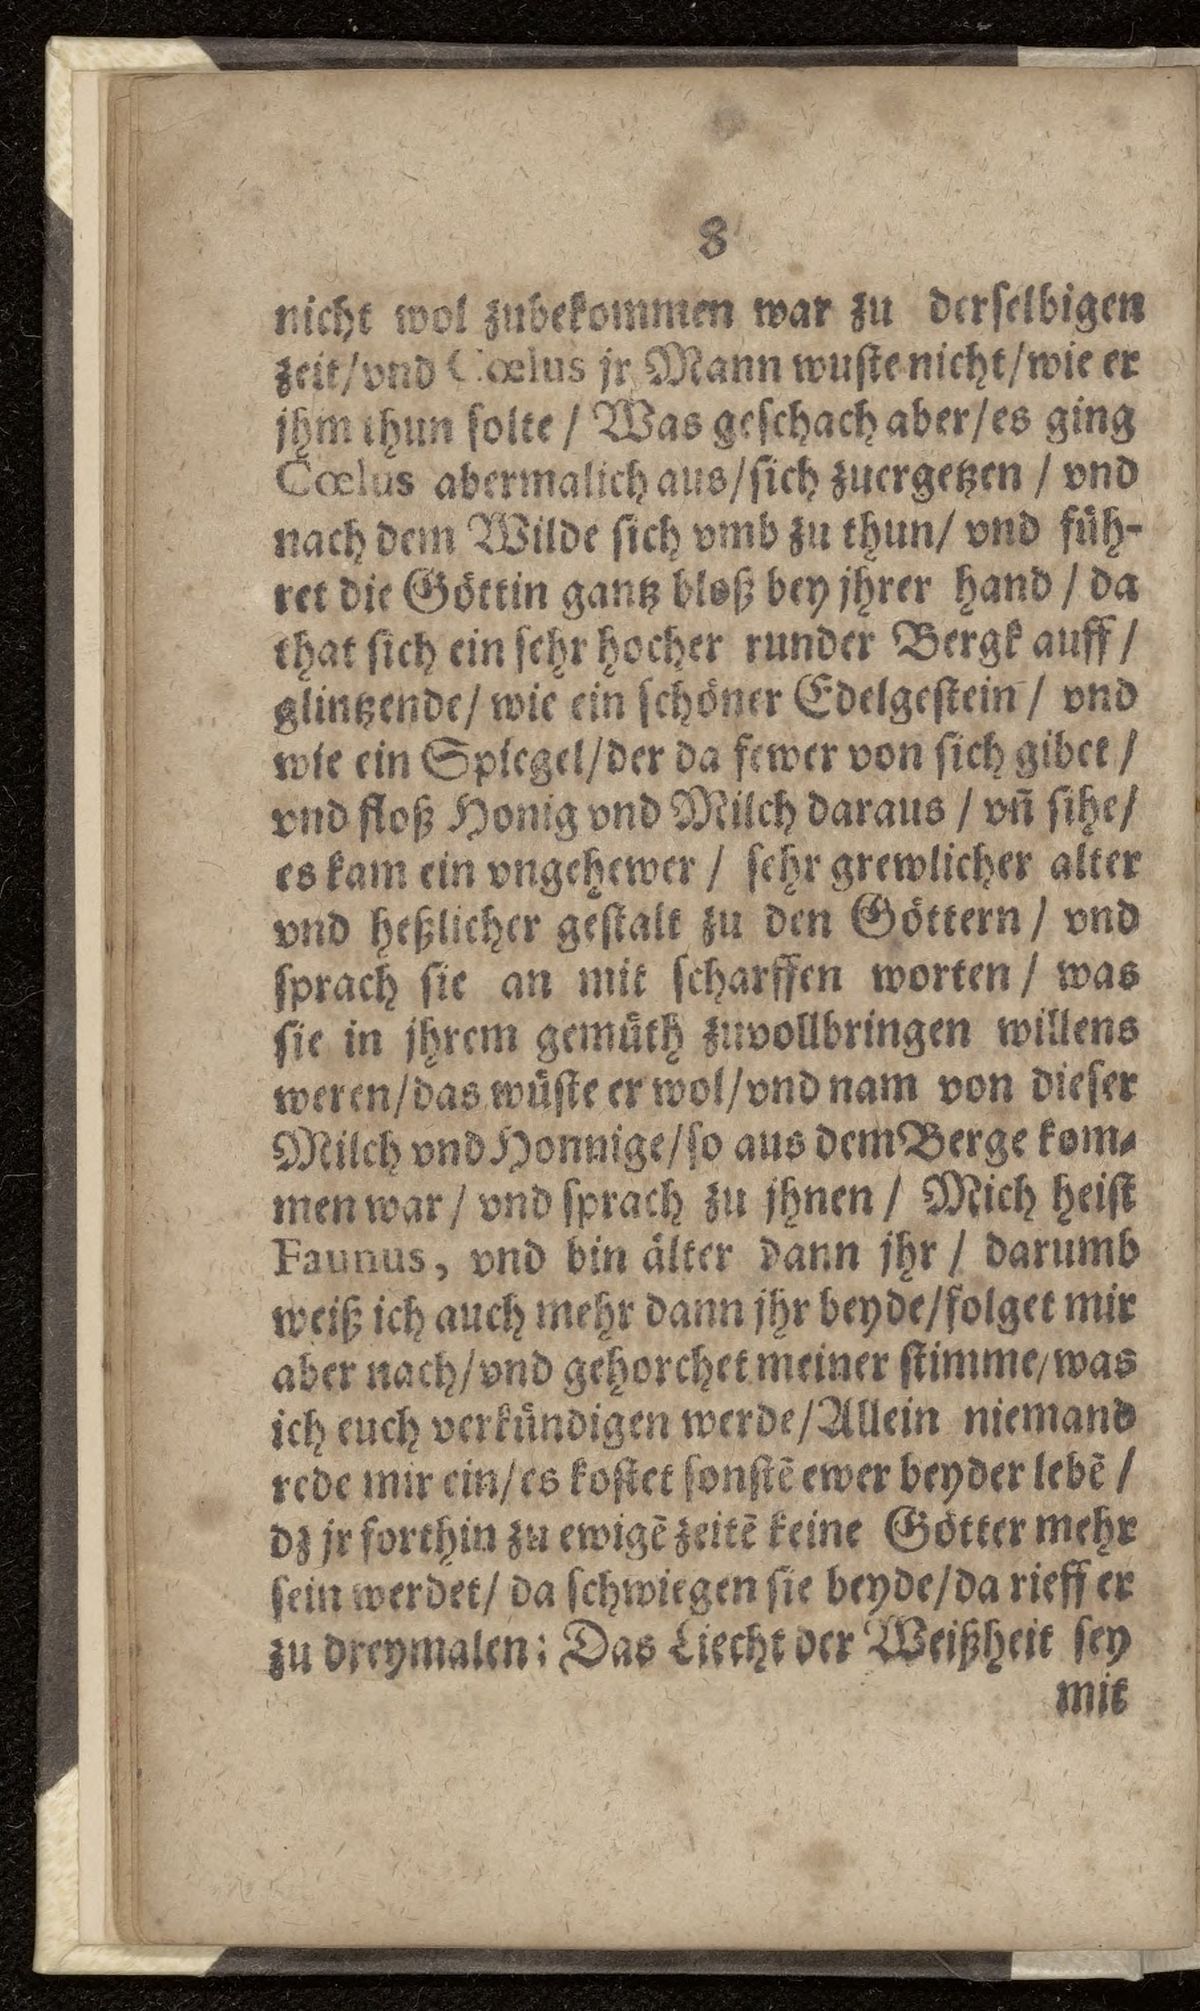 8
nicht wol zubekommen war zu derselbigen
zeit/vnd Cœlus jr Mann wuste nicht/wie er
jhm thun solte / Was geschach aber/es ging
Cœlus abermalich aus/sich zuergetzen / vnd
nach dem Wilde sich vmb zu thun/ vnd füh-
ret die Göttin gantz bloß bey jhrer hand / da
that sich ein sehr hocher runder Bergk auff /
glintzende/ wie ein schöner Edelgestein / vnd
wie ein Spiegel/der da fewer von sich gibet /
vnd floß Honig vnd Milch daraus / vñ sihe/
es kam ein vngehewer / sehr grewlicher alter
vnd heßlicher gestalt zu den Göttern / vnd
sprach sie an mit scharffen worten / was
sie in jhrem gemüth zuvollbringen willens
weren/das wüste er wol/vnd nam von dieser
Milch vnd Honnige/so aus dem Berge kom-
men war / vnd sprach zu jhnen / Mich heist
Faunus, vnd bin älter dann jhr / darumb
weiß ich auch mehr dann jhr beyde/folget mir
aber nach/vnd gehorchet meiner stimme/was
ich euch verkündigen werde/Allein niemand
rede mir ein/es kostet sonstē ewer beyder lebē /
dz jr forthin zu ewigē zeitē keine Götter mehr
sein werdet/ da schwiegen sie beyde/da rieff er
zu dreymalen: Das Liecht der Weißheit sey
mit